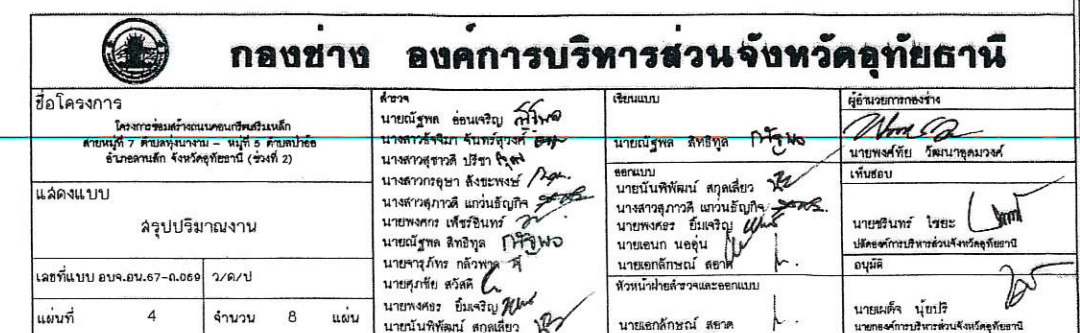 กองช่าง องค์การบริหารส่วนจังหวัดอุทัยธานี
ชื่อโครงการ
โครงการซ่อมสร้างถนนคอนกรีตเสริมเหล็ก
สายหมู่ที่ 7 ตำบลทุ่งนางาม - หมู่ที่ 5 ตำบลป่าอ้อ
อำเภอลานสัก จังหวัดอุทัยธานี (ช่วงที่ 2)
แสดงแบบ
สรุปปริมาณงาน
เลขที่แบบ อบจ.อน.67-ถ.069 ว/ด/ป
แผ่นที่ 4 จำนวน 8 แผ่น
สำรวจ
นายณัฐพล อ่อนเจริญ
นางสาวรัจจิมา จันทร์สุวงศ์
นางสาวสุชาวดี ปรีชา
นางสาวกรอุษา สังขะพงษ์
นางสาวสุภาวดี แกว่นธัญกิจ
นายพงศกร เพ็ชร์อินทร์
นายณัฐพล สิทธิทูล
นายจารุภัทร กลัวพาล
นายศุภชัย สวัสดี
นายพงศธร ยิ้มเจริญ
นายนันพิพัฒน์ สกุลเลี่ยว
เขียนแบบ
นายณัฐพล สิทธิทูล
ออกแบบ
นายนันพิพัฒน์ สกุลเลี่ยว
นางสาวสุภาวดี แกว่นธัญกิจ
นายพงศธร ยิ้มเจริญ
นายเอนก นออุ่น
นายเอกลักษณ์ สอาด
หัวหน้าฝ่ายสำรวจและออกแบบ
นายเอกลักษณ์ สอาด
ผู้อำนวยการกองช่าง
นายพงศ์ทัย วัฒนาอุดมวงศ์
เห็นชอบ
นายชรินทร์ ไชยะ
ปลัดองค์การบริหารส่วนจังหวัดอุทัยธานี
อนุมัติ
นายเผด็จ นุ้ยปรี
นายกองค์การบริหารส่วนจังหวัดอุทัยธานี